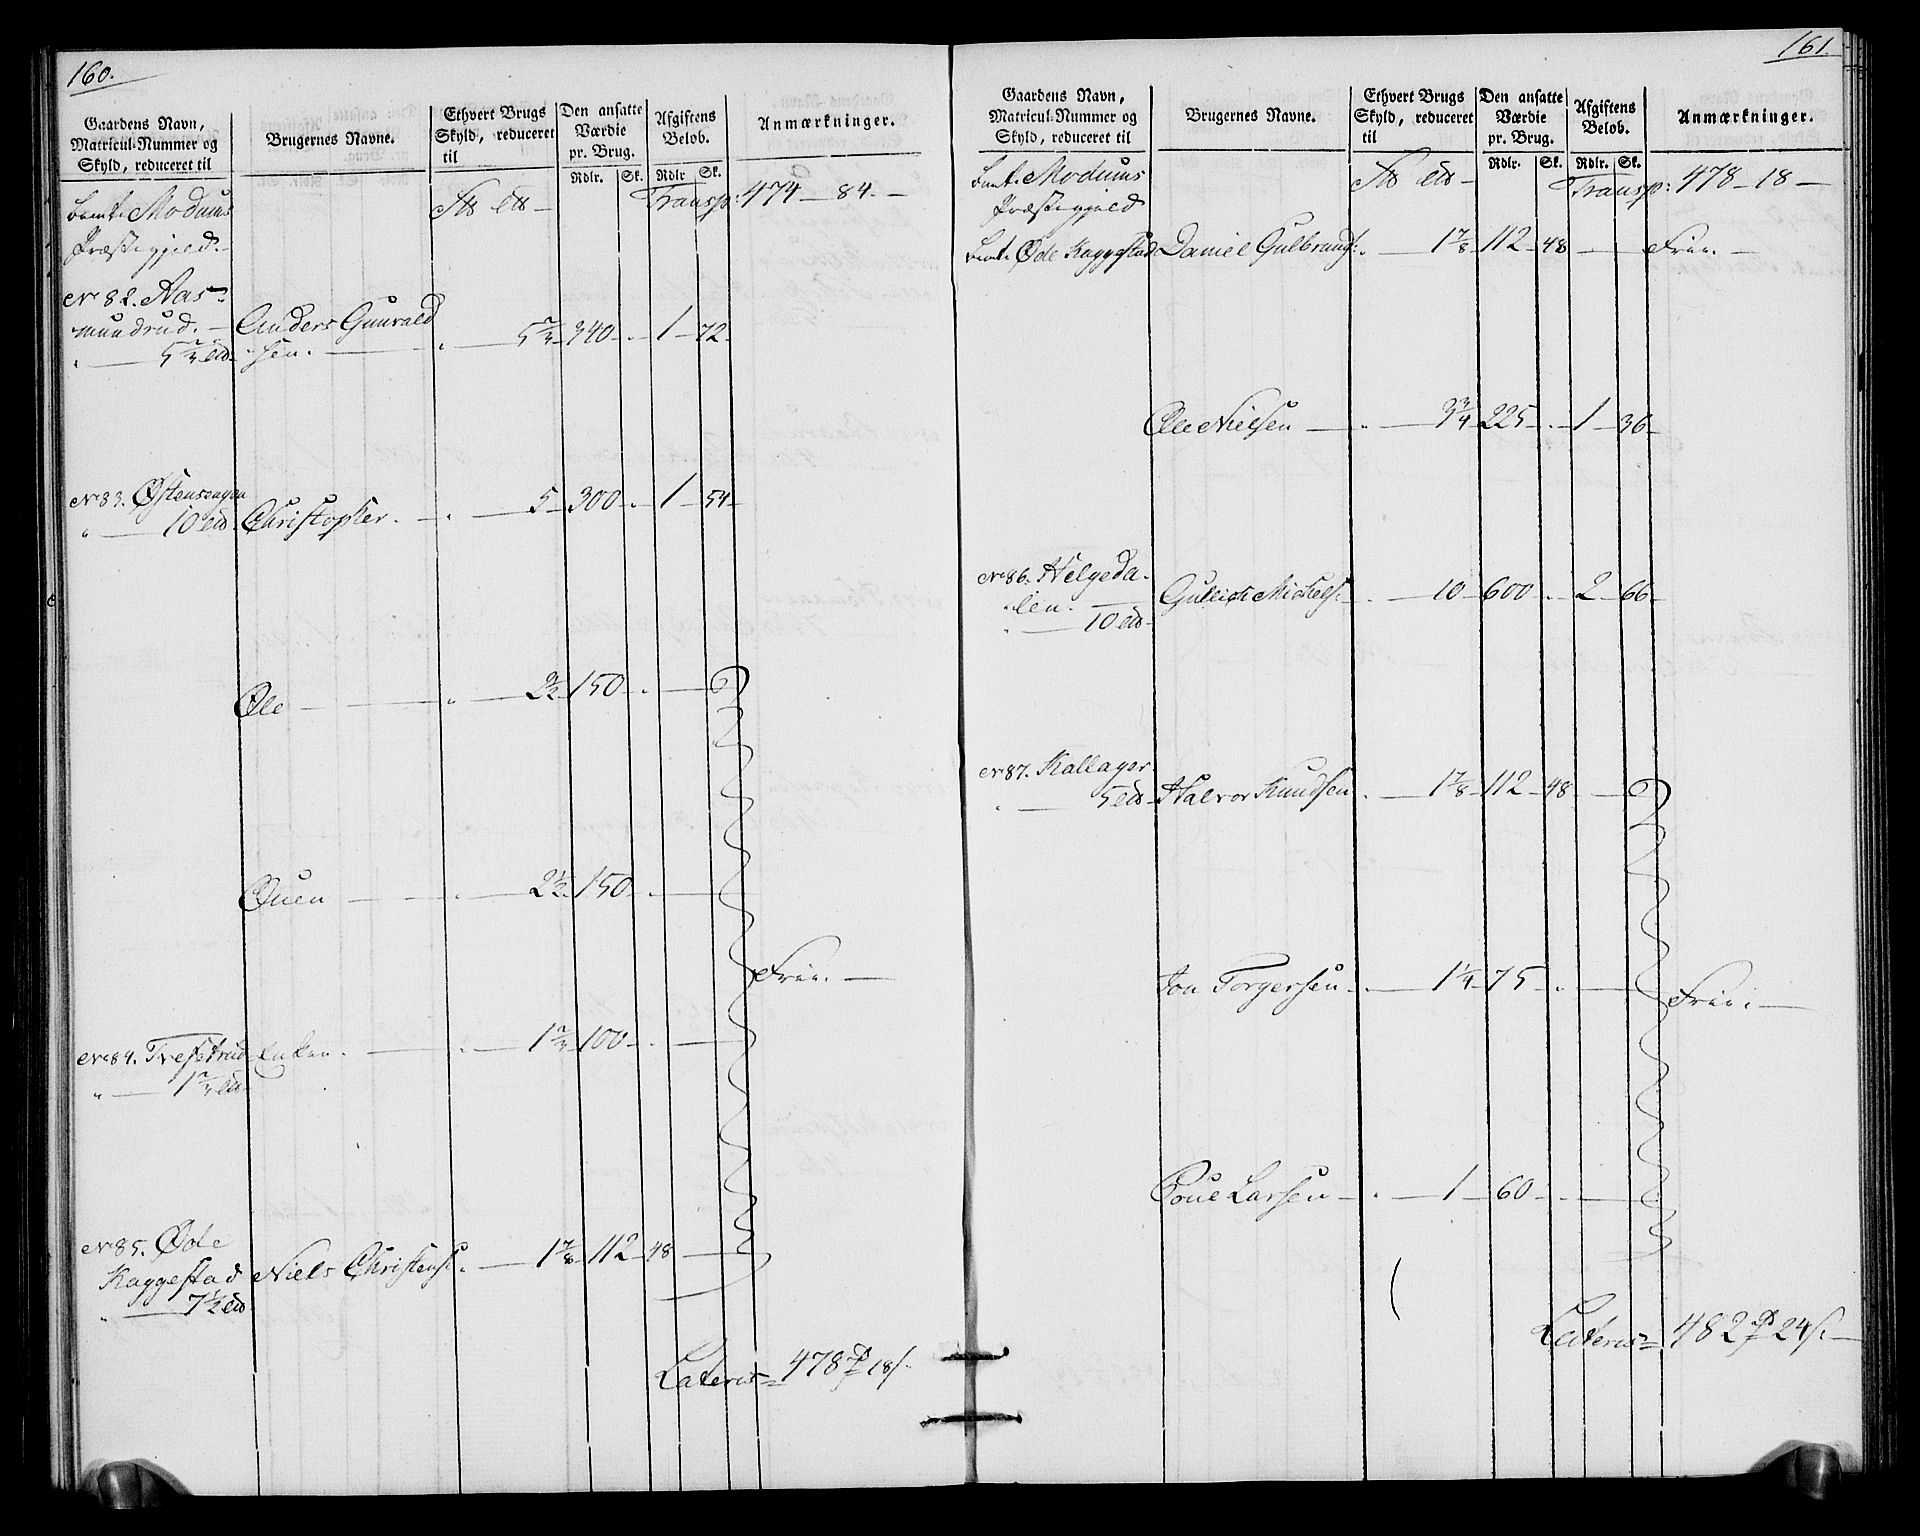 160.
Gaardens Navn, Matricul-Nummer og Skyld, reduceret til
Brugernes Navne.
Ethvert Brugs Skyld, reduceret til
Den ansatte Værdie pr. Brug.
Rdlr. Sk.
Afgiftens Beløb.
Rdlr Sk.
Anmærkninger.
Modums Præstegjeld.
Transp: 474 — 84. —
No 82. Aas-
mundrud. — Anders Gunvald
5 2/3 — sen. — 5 2/3 — 340 — 1 — 72 —
No 83. Østensengen
10 Christopher. — 5 — 300 — 1 — 54 —
Ole — 2 1/2 — 150 —
Ouen — 2 1/2 — 150 —
Frie. —
No 84. Enken. — 1 2/3 — 100 —
1 2/3
No 85. Øde
Kaggestad Niels Christens: — 1 7/8 — 112 — 48 —
7 1/2
Lateris = 478 18 s.
161.
Gaardens Navn, Matricul-Nummer og Skyld, reduceret til
Brugernes Navne.
Ethvert Brugs Skyld, reduceret til
Den ansatte Værdie pr. Brug.
Rdlr. Sk.
Afgiftens Beløb.
Rdlr. Sk.
Anmærkninger.
Modums Præstegjeld
Transp: 478 — 18 —
Øde Kaggestad Daniel Gulbrands: — 1 7/8 — 112 — 48 — Frie. —
Ole Nielsen — 3 3/4 — 225 — 1 — 36 —
No 86. Helgeda-
len. — Gullich Michels: — 10 — 600 — 2 — 66 —
10
No 87. Kallager
5 Halvor Knudsen — 1 7/8 — 112 — 48 —
Jon Torgersen — 1 1/4 — 75 —
Frie. —
Poul Larsen — 1 — 60 —
Lateris = 482 24 s. —